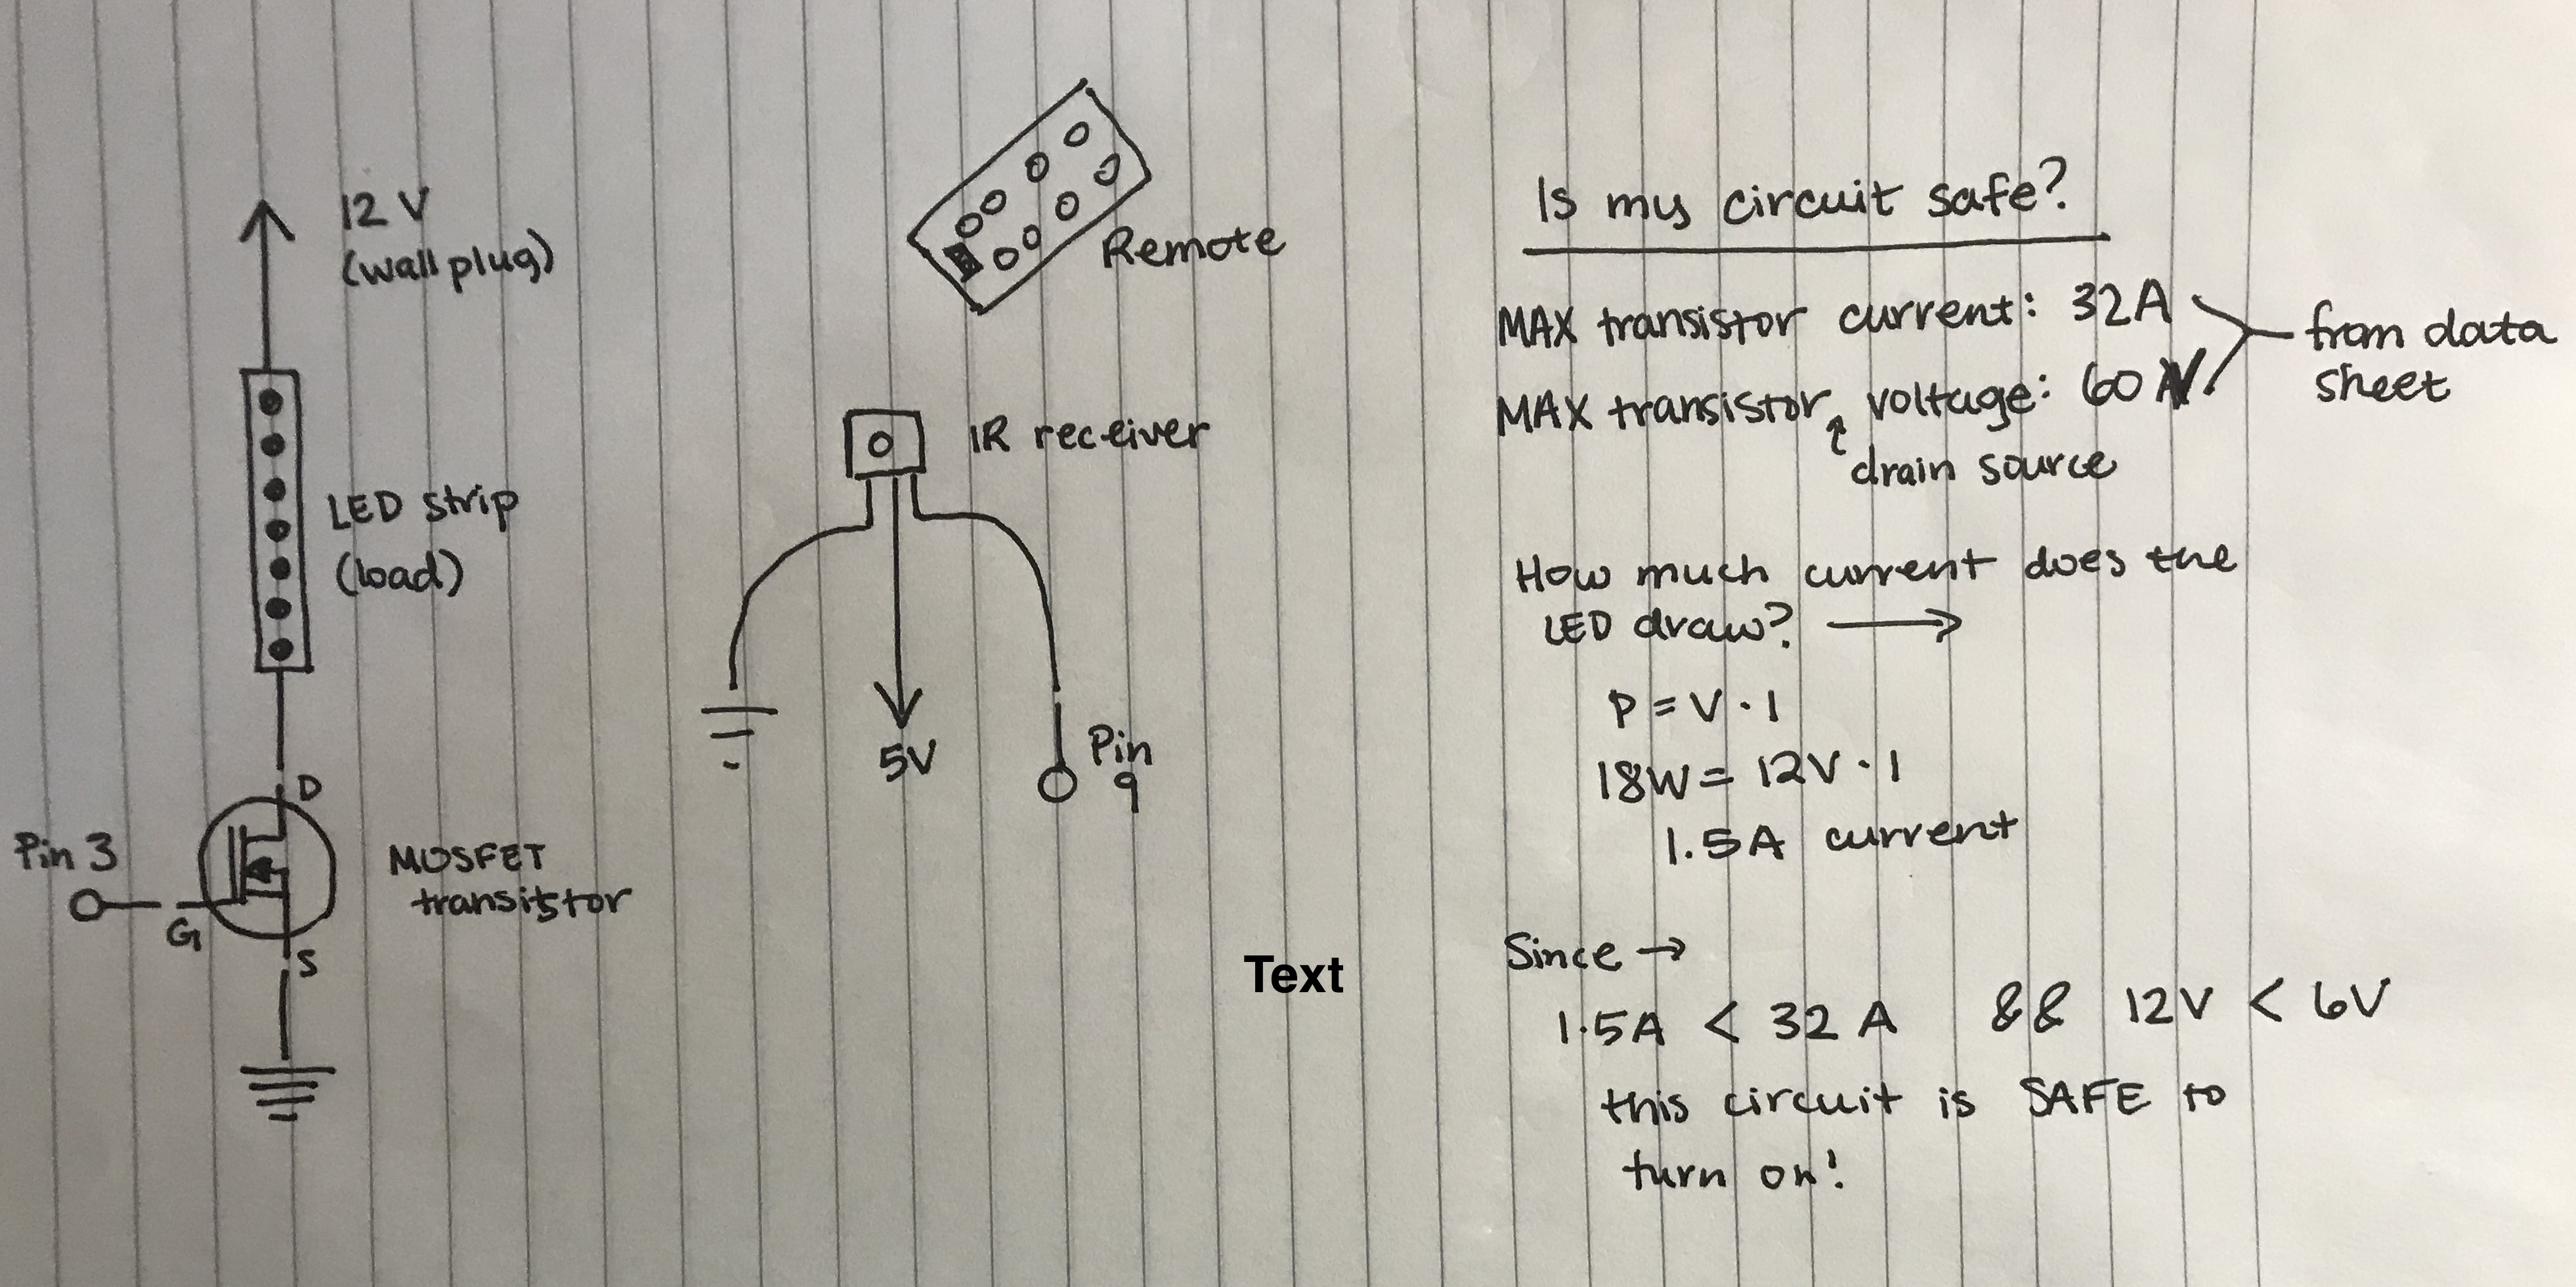 12 V
(wall plug)
LED strip
(load)
D
Pin 3
G
S
MOSFET
transistor
Remote
IR receiver
5V
Pin
9
Text
Is my circuit safe?
MAX transistor current: 32A
MAX transistor voltage: 60 V
drain source
from data
sheet
How much current does the
LED draw? →
P = V · I
18W = 12V · I
1.5A current
Since →
1.5A < 32 A && 12V < 6V
this circuit is SAFE to
turn on!